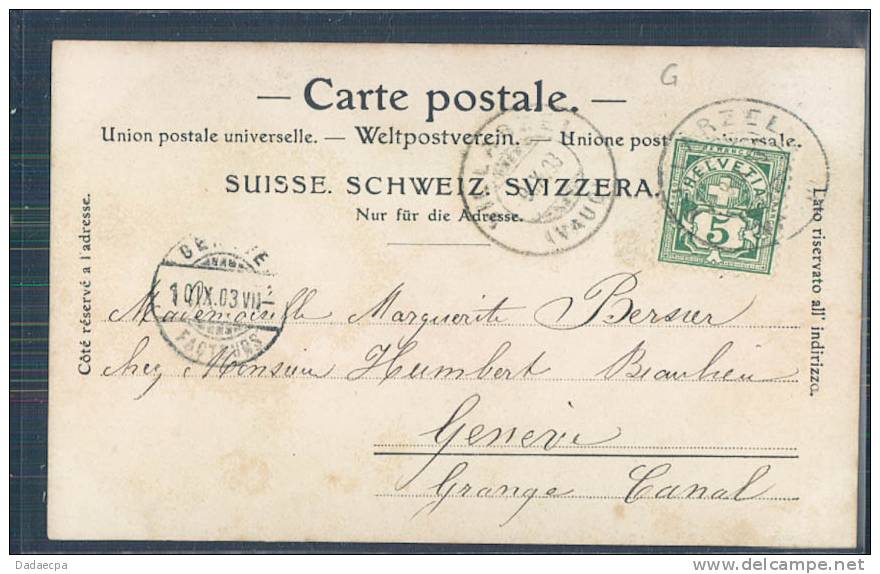 G
— Carte postale. —
Union postale universelle. — Weltpostverein. — Unione postale universale.
SUISSE. SCHWEIZ. SVIZZERA.
Nur für die Adresse.
Côté réservé à l'adresse.
Lato riservato all' indirizzo.
(VAUD)
IX.03
HELVETIA
5
GENÈVE
10.IX.03 VII-
FACTEURS
Mademoiselle Marguerite Bersier
chez Monsieur Humbert Beaulieu
Genève
Grange Canal
Dadaecpa
www.delcampe.net